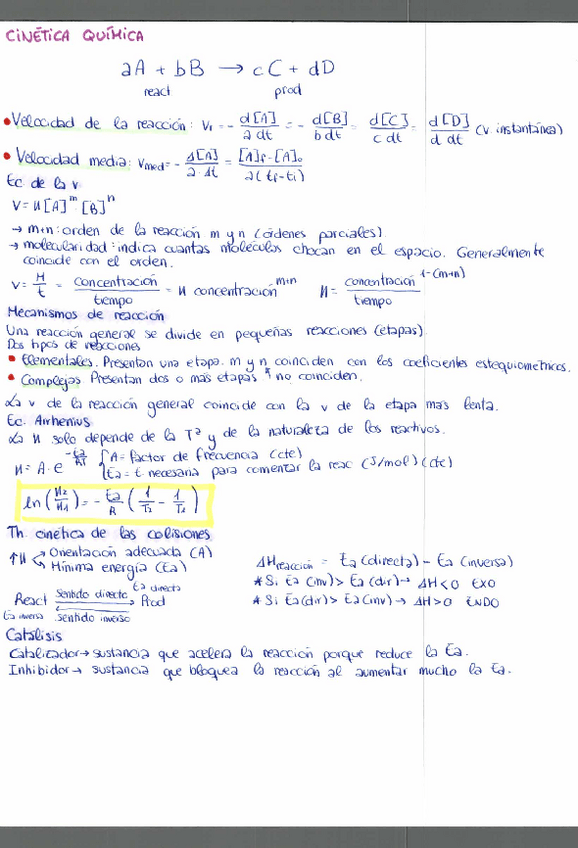 CINÉTICA QUÍMICA
aA + bB → cC + dD
react prod
• Velocidad de la reacción: Vi = - d[A]/a dt = - d[B]/b dt = d[C]/c dt = d[D]/d dt (v. instantánea)
• Velocidad media: Vmed = - Δ[A]/a·Δt = [A]f - [A]o / a(tf - ti)
Ec. de la v
V = K [A]^m [B]^n
→ m+n: orden de la reacción m y n (órdenes parciales).
→ molecularidad: indica cuantas moléculas chocan en el espacio. Generalmente
coincide con el orden.
v = M/t = concentración/tiempo = K concentración^m+n K = concentración^1-(m+n)/tiempo
Mecanismos de reacción
Una reacción general se divide en pequeñas reacciones (etapas).
Dos tipos de reacciones
• Elementales. Presentan una etapa. m y n coinciden con los coeficientes estequiométricos.
• Complejas Presentan dos o más etapas y no coinciden.
La v de la reacción general coincide con la v de la etapa más lenta.
Ec. Arrhenius
La K solo depende de la Tª y de la naturaleza de los reactivos.
K = A·e^-Ea/RT { A = factor de frecuencia (cte)
Ea = E necesaria para comentar la reac (J/mol) (cte)
ln (K2/K1) = - Ea/R (1/T2 - 1/T1)
Th. cinética de las colisiones
↑K Orientación adecuada (A)
Mínima energía (Ea)
ΔH reacción = Ea (directa) - Ea (inversa)
* Si Ea (inv) > Ea (dir) → ΔH < 0 EXO
* Si Ea (dir) > Ea (inv) → ΔH > 0 ENDO
Ea directa
React sentido directo Prod
Ea inversa sentido inverso
Catálisis
Catalizador → sustancia que acelera la reacción porque reduce la Ea.
Inhibidor → sustancia que bloquea la reacción al aumentar mucho la Ea.